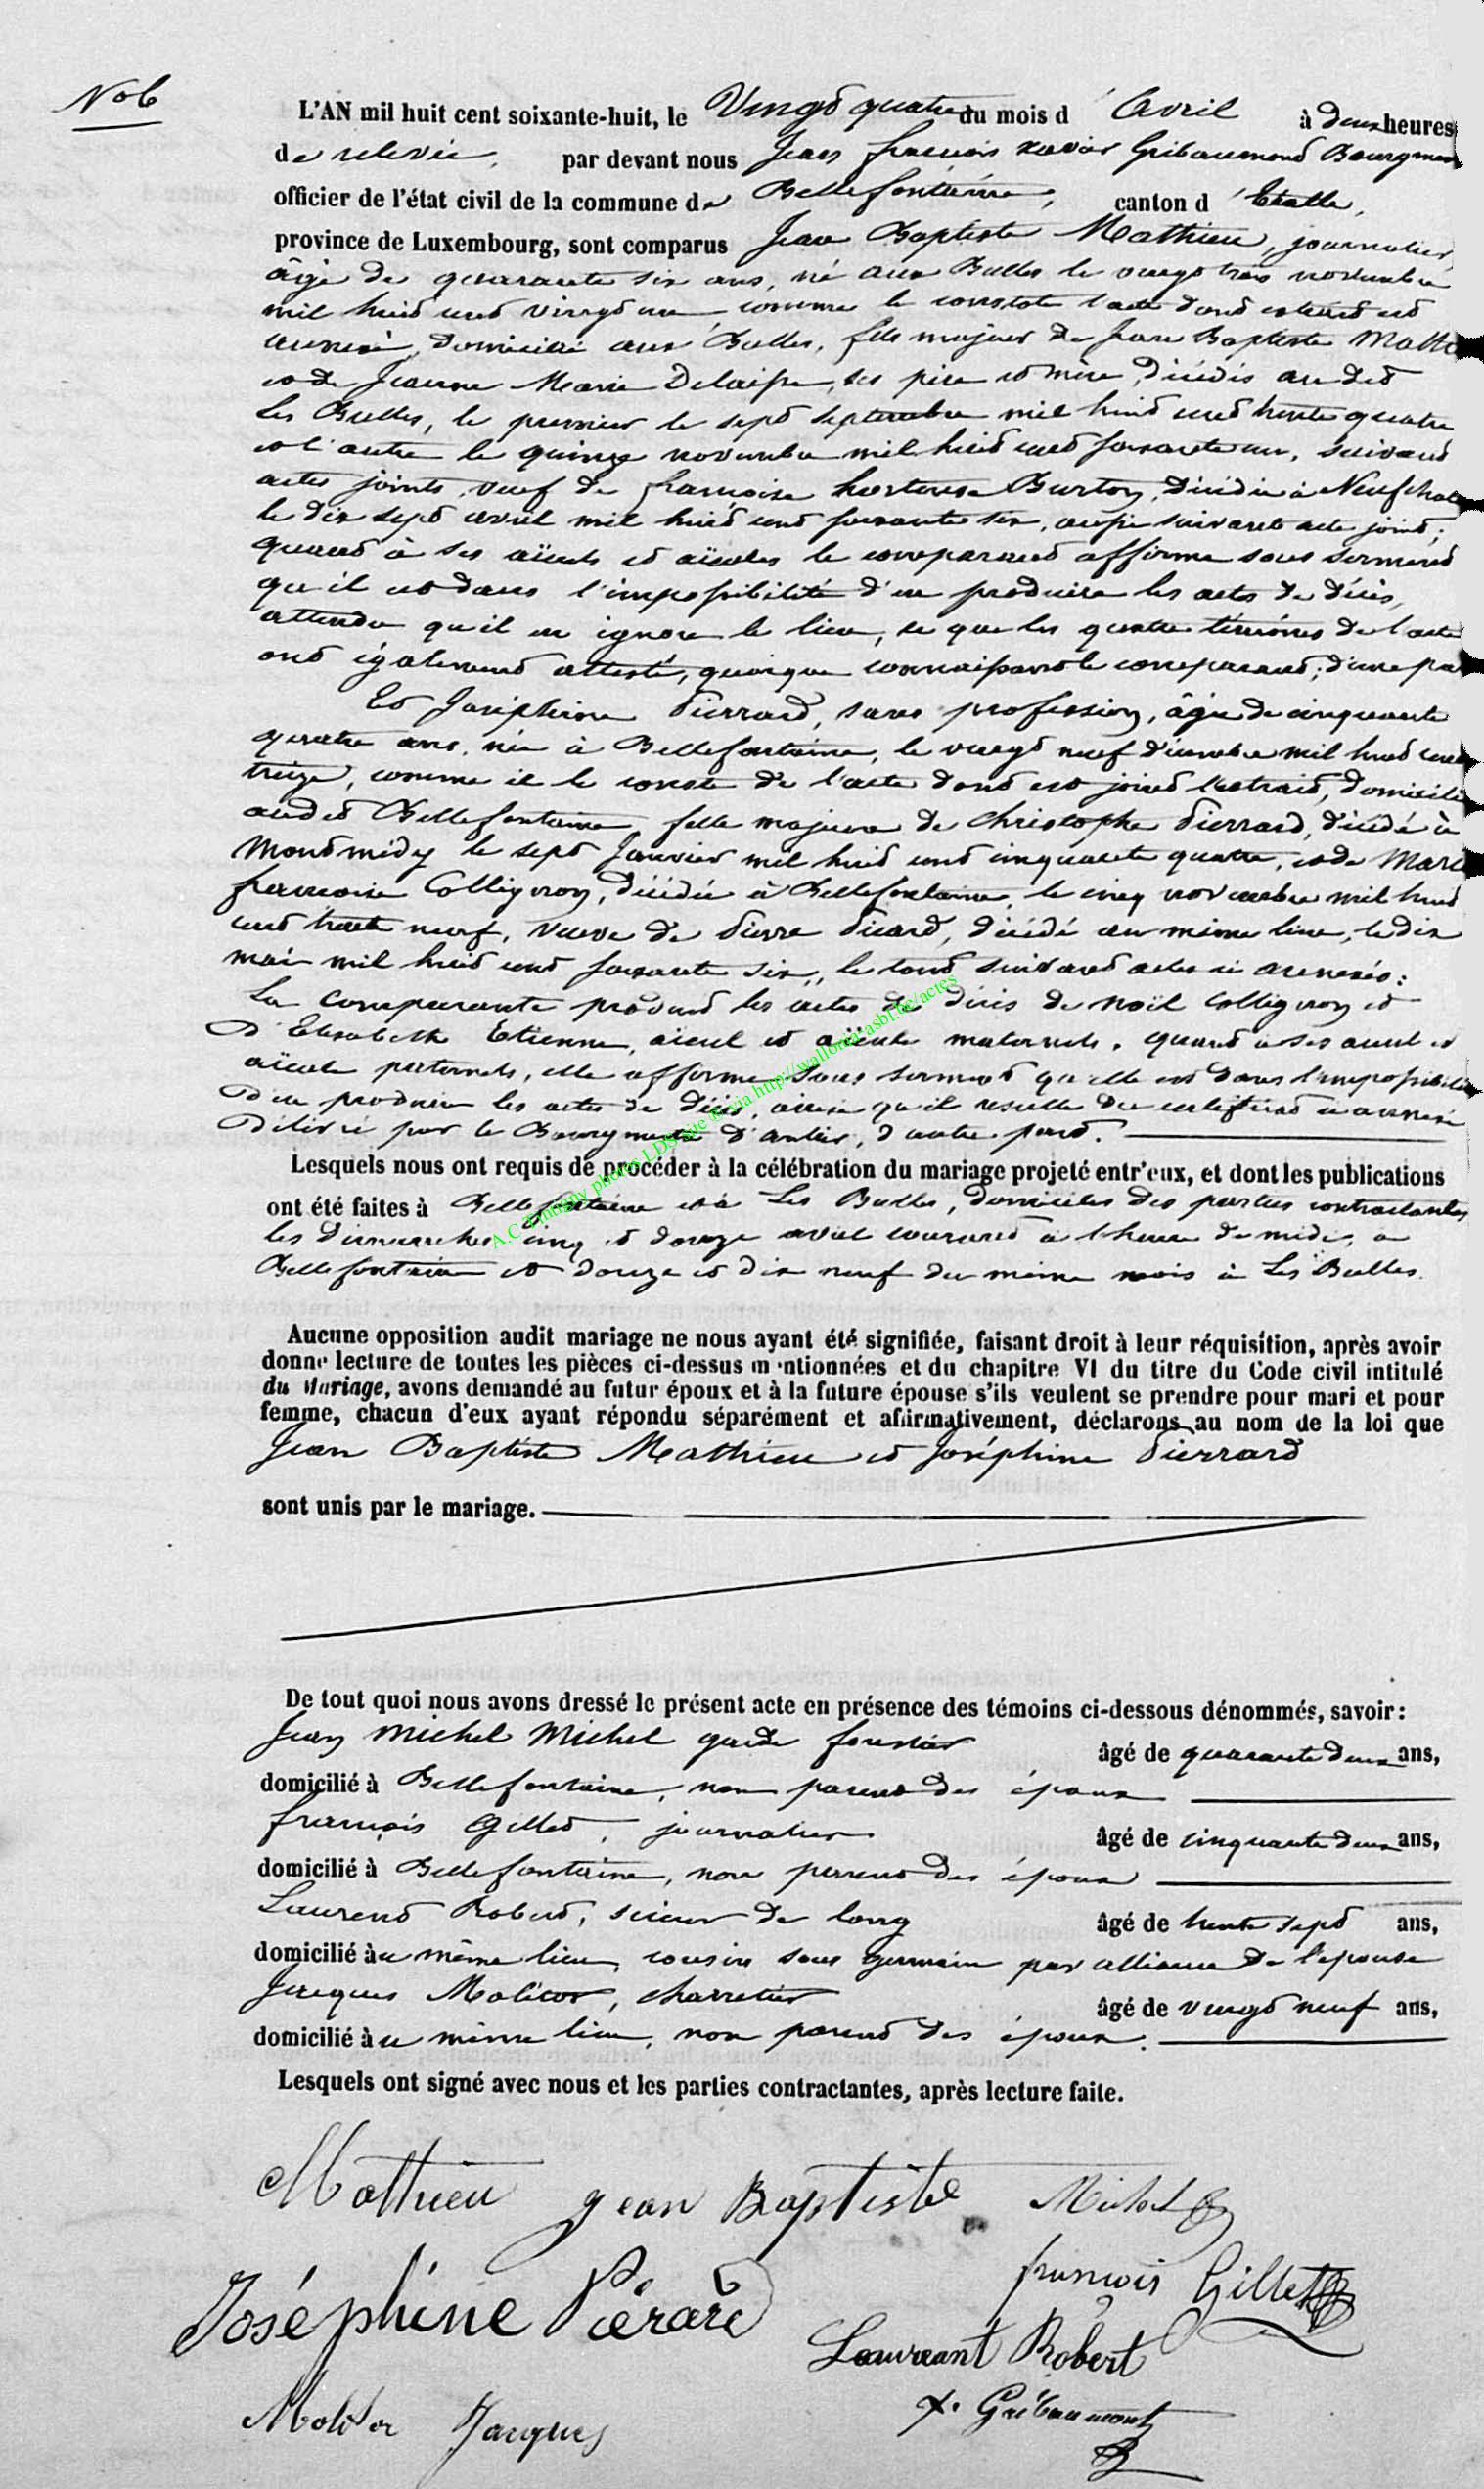 No 6
L'AN mil huit cent soixante-huit, le Vingt quatre du mois d'Avril à deux heures
de relevée, par devant nous Jean françois xavier Gribaumont Bourgmes
officier de l'état civil de la commune de Bellefontaine, canton d'Etalle,
province de Luxembourg, sont comparus Jean Baptiste Mathieu, journalier,
âgé de quarante six ans, né aux Bulles le vingt trois novembre
mil huit cent vingt un, comme le constate l'acte dont extrait est
annexé, domicilié aux Bulles, fils majeur de Jean Baptiste Math
et de Jeanne Marie Delaisse, ses père et mère, décédés au dit
Les Bulles, le premier le sept septembre mil huit cent trente quatre
et l'autre le quinze novembre mil huit cent soixante un, suivant
actes joints, veuf de françoise hortense Burton, décédée à Neufchat
le dix sept avril mil huit cent soixante six, aussi suivant acte joint;
quand à ses aïeuls et aïeules le comparant affirme sous serment
qu'il est dans l'impossibilité d'en produire les actes de décès,
attendu qu'il en ignore le lieu, ce que les quatre témoins de l'acte
ont également attesté, quoique connaissant le comparant; d'une pa
Et Joséphine Pierrard, sans profession, âgée de cinquante
quatre ans, née à Bellefontaine, le vingt neuf décembre mil huit cent
treize, comme il le conste de l'acte dont est joint l'extrait, domicili
audit Bellefontaine, fille majeure de Christophe Pierrard, décédé à
Montmédy le sept Janvier mil huit cent cinquante quatre, et de Marie
françoise Collignon, décédée à Bellefontaine, le cinq novembre mil huit
cent trente neuf, veuve de Pierre Picard, décédé au même lieu, le dix
mai mil huit cent soixante six, le tout suivant actes ci annexés:
La comparante produit les actes de décès de Noël Collignon et
D'Elisabeth Etienne, aïeul et aïeule maternels, quand à ses aieul et
aïeule paternels, elle affirme sous serment qu'elle est dans l'impossibili
D'en produire les actes de décès, ainsi qu'il resulte du certificat ci annexé
Délivré par le Bourgmestre d'Anlier, d'autre part.
Lesquels nous ont requis de procéder à la célébration du mariage projeté entr'eux, et dont les publications
ont été faites à Bellefontaine et à Les Bulles, domiciles des parties contractantes
les dimanches cinq et douze avril courant à l'heure de midi, à
Bellefontaine et douze et dix neuf du même mois à Les Bulles.
Aucune opposition audit mariage ne nous ayant été signifiée, faisant droit à leur réquisition, après avoir
donné lecture de toutes les pièces ci-dessus mentionnées et du chapitre VI du titre du Code civil intitulé
du Mariage, avons demandé au futur époux et à la future épouse s'ils veulent se prendre pour mari et pour
femme, chacun d'eux ayant répondu séparément et affirmativement, déclarons au nom de la loi que
Jean Baptiste Mathieu et Joséphine Pierrard
sont unis par le mariage.
De tout quoi nous avons dressé le présent acte en présence des témoins ci-dessous dénommés, savoir:
Jean Michel Michel garde forestier âgé de quarante deux ans,
domicilié à Bellefontaine, non parent des époux
françois Gillet, journalier âgé de cinquante deux ans,
domicilié à Bellefontaine, non parent des époux
Laurent Robert, scieur de long âgé de trente sept ans,
domicilié au même lieu, cousin sous germain par alliance de l'épouse
Jacques Molitor, charretier âgé de vingt neuf ans,
domicilié au même lieu, non parent des époux.
Lesquels ont signé avec nous et les parties contractantes, après lecture faite.
Mathieu Jean Baptiste Michel
françois Gillet
Joséphine Piérard
Laureant Robert
Molitor Jacques
x. Gribaumont
A.C. Tintigny photos LDS site via http://wallonia-asbl.be/actes